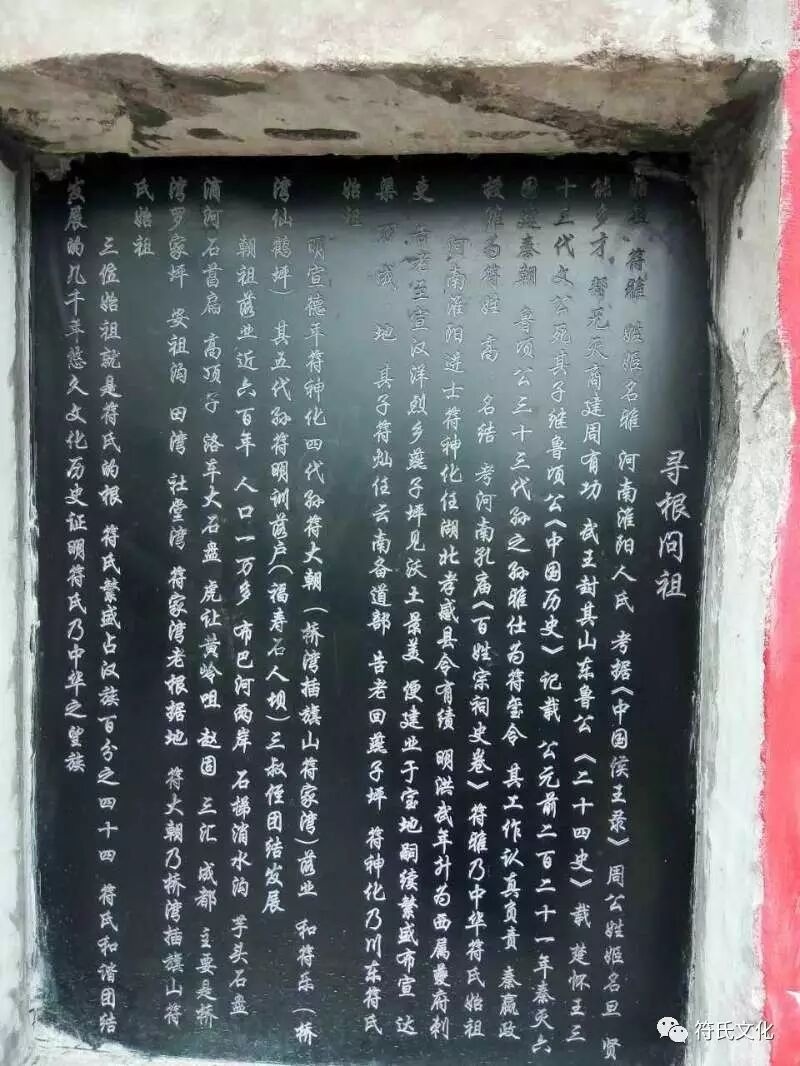 寻根问祖
始祖 符雅 姓姬名雅 河南淮阳人氏 考据《中国侯王录》 周公姓姬名旦 贤
能多才 帮兄灭商建周有功 武王封其山东鲁公 《二十四史》 载 楚怀王三
十三代文公死其子继鲁顷公《中国历史》 记载 公元前二百二十一年秦灭六
国建秦朝 鲁顷公三十三代孙之孙雅仕为符玺令 其工作认真负责 秦嬴政
授雅为符姓 高 名结 考河南孔庙《百姓宗祠史卷》 符雅乃中华符氏始祖
河南淮阳进士符神化任湖北孝感县令有绩 明洪武年升为西属夔府刺
吏 告老至宣汉洋烈乡燕子坪见沃土景美 便建业于宝地嗣续繁盛布宣 达
渠 万 城 地 其子符灿任云南备道部 告老回燕子坪 符神化乃川东符氏
始祖
明宣德年符神化四代孙符大朝（桥湾插旗山符家湾）落业 和符乐（桥
湾仙鹤坪）其五代孙符明训落户（福寿石人坝）三叔侄团结发展
朝祖落业近六百年 人口一万多 布巴河两岸 石梯消水沟 芋头石盘
浦河石菖扁 高顶子 洛车大石盘 虎让黄岭咀 赵固 三汇 成都 主要是桥
湾罗家坪 安祖沟 田湾 社堂湾 符家湾老根据地 符大朝乃桥湾插旗山符
氏始祖
三位始祖就是符氏的根 符氏繁盛占汉族百分之四十四 符氏和谐团结
发展的几千年悠久文化历史证明符氏乃中华之望族
符氏文化